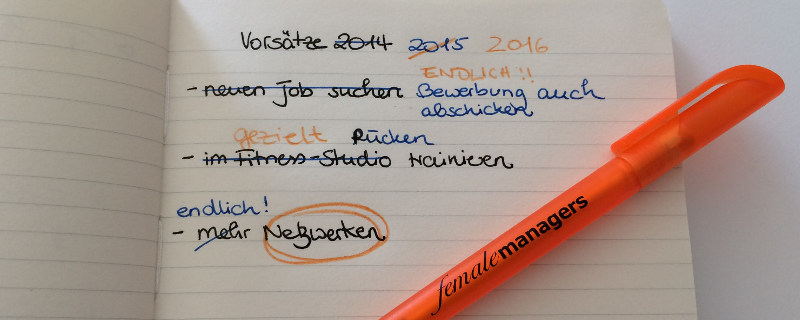 Vorsätze 2014 2015 2016
ENDLICH!!
- neuen Job suchen Bewerbung auch
abschicken
gezielt Rücken
- im Fitness-Studio trainieren
endlich!
- mehr Netzwerken
femalemanagers